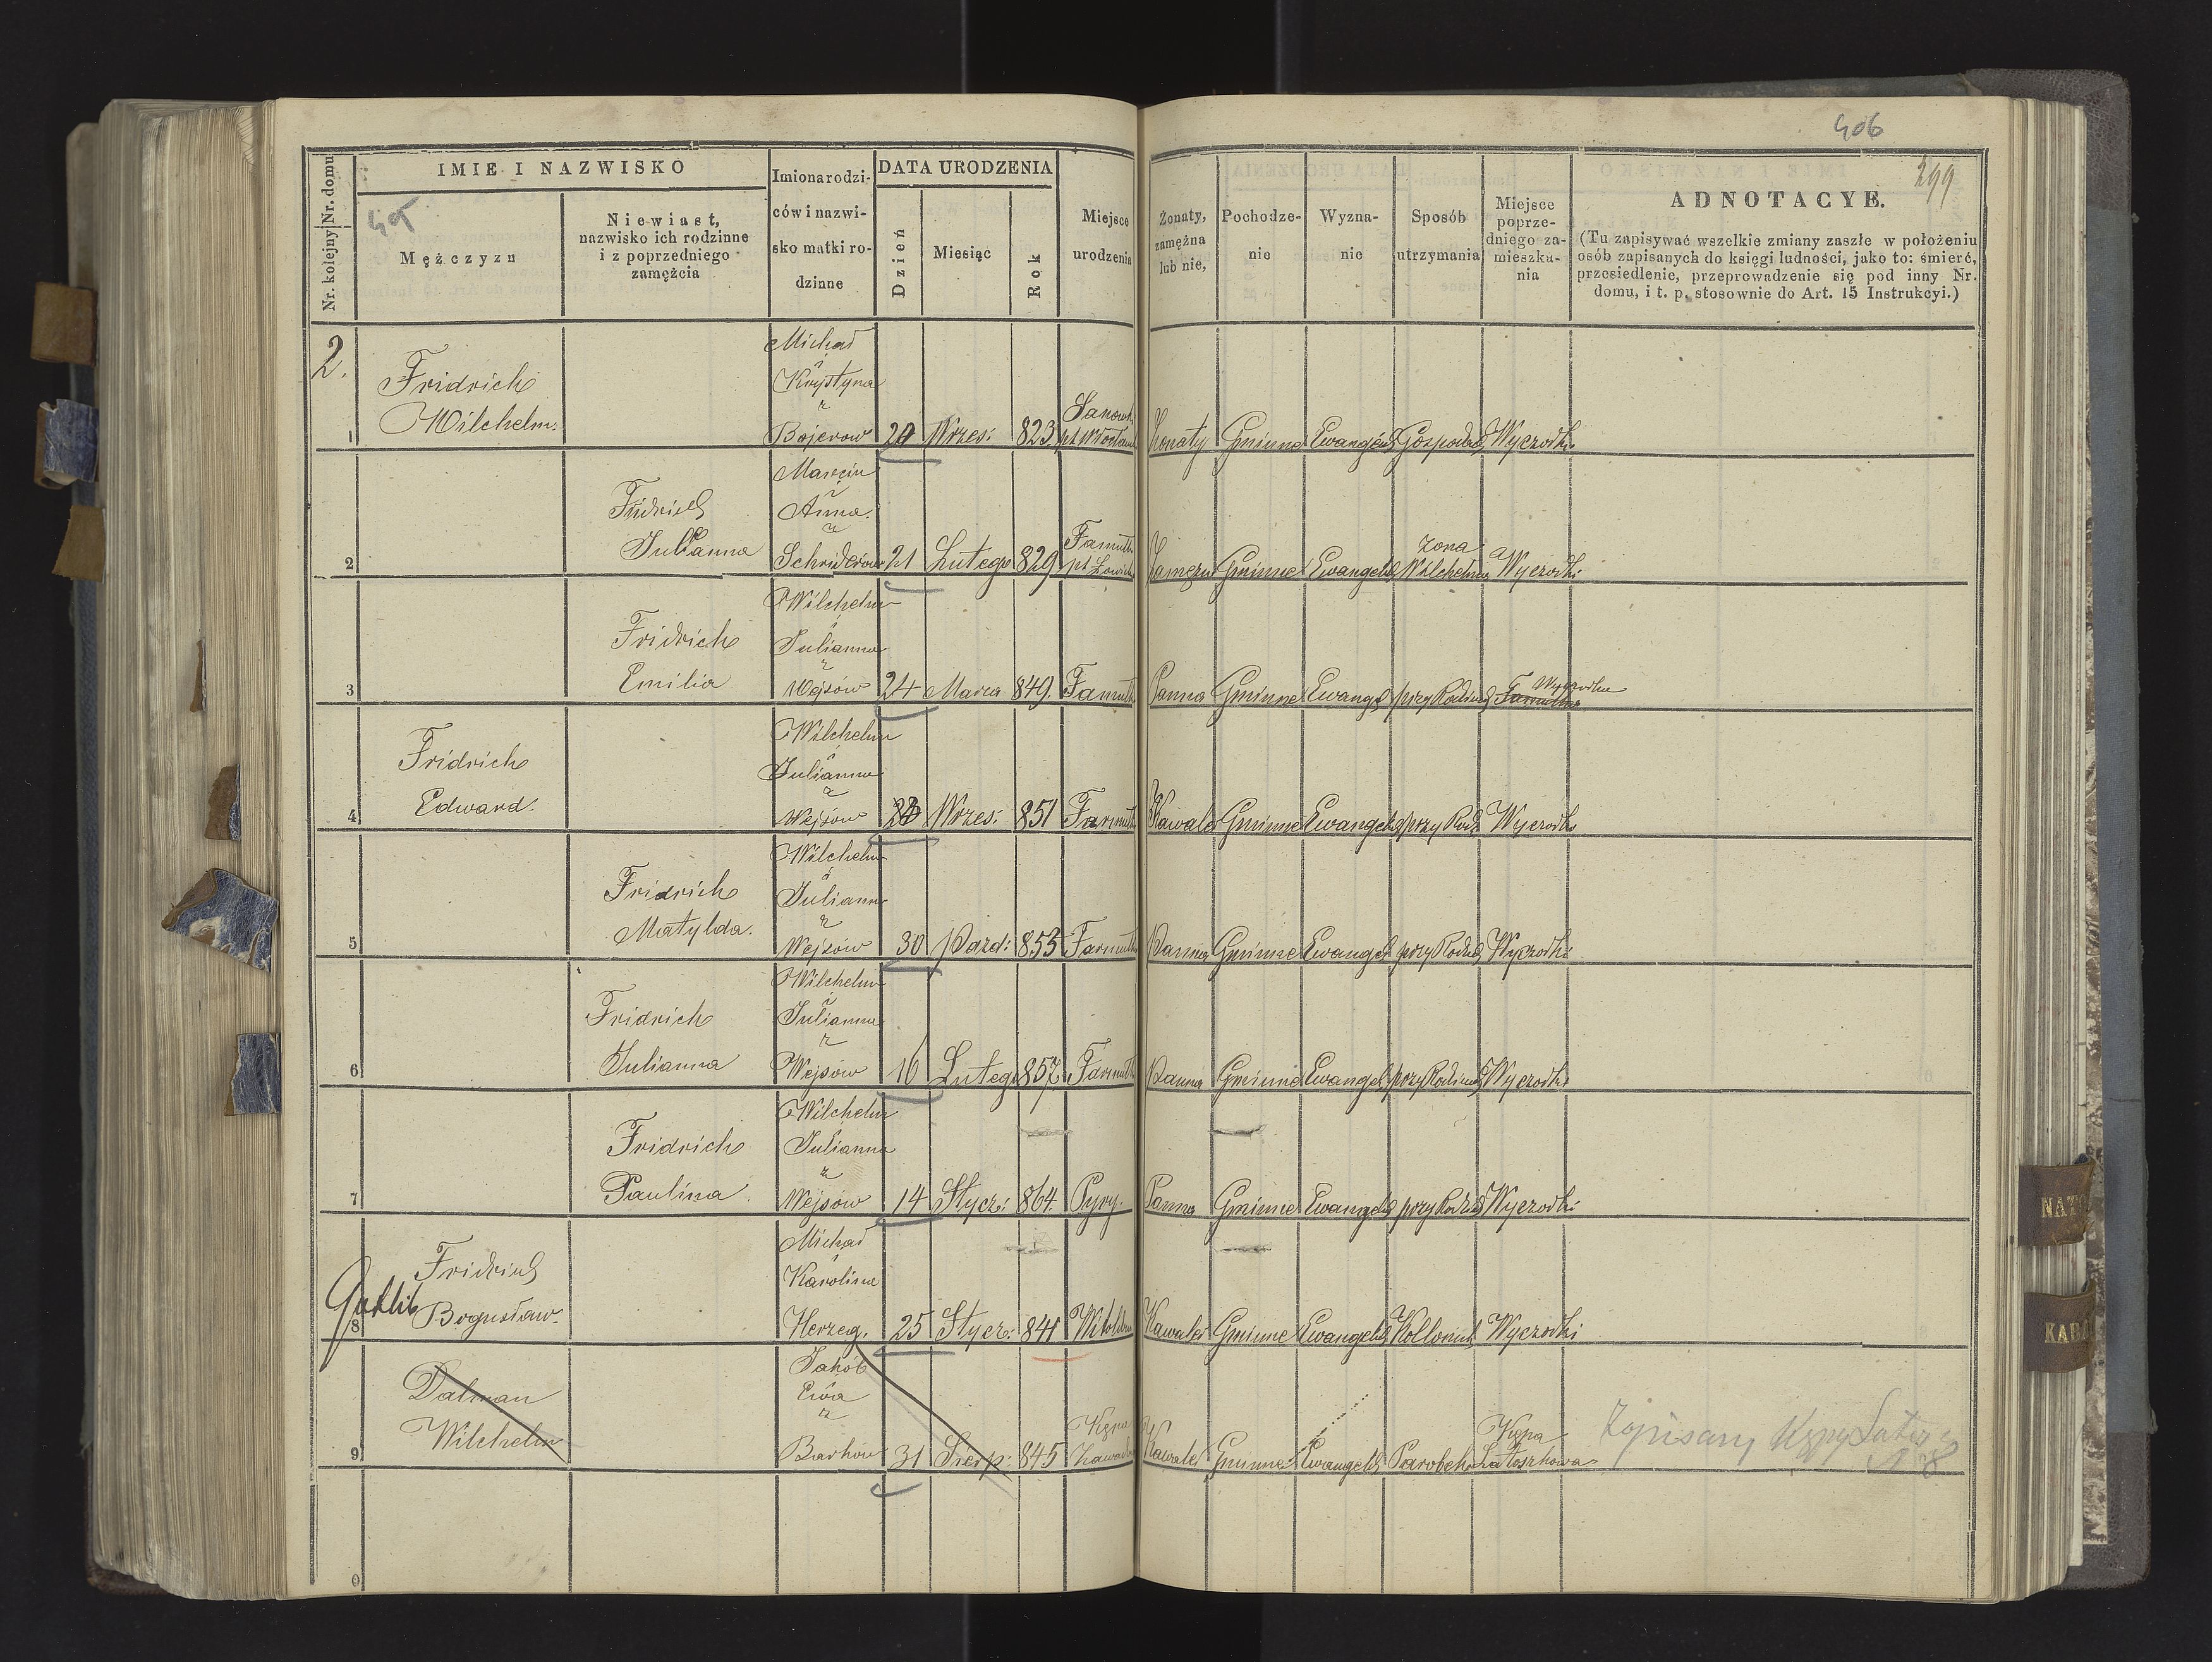 406
299
Nr. kolejny Nr. domu
IMIE I NAZWISKO
Mężczyzn
Niewiast,
nazwisko ich rodzinne
i z poprzedniego
zamężcia
Imiona rodzi-
ców i nazwi-
sko matki ro-
dzinne
DATA URODZENIA
Dzień
Miesiąc
Rok
Miejsce
urodzenia
Żonaty,
zamężna
lub nie,
Pochodze-
nie
Wyzna-
nie
Sposób
utrzymania
Miejsce
poprze-
dniego za-
mieszka-
nia
ADNOTACYE.
(Tu zapisywać wszelkie zmiany zaszłe w położeniu
osób zapisanych do księgi ludności, jako to: śmierć,
przesiedlenie, przeprowadzenie się pod inny Nr.
domu, i t. p. stosownie do Art. 15 Instrukcyi.)
2.
1
Fridrich
Wilchelm
Michał
i
Krystyna
z
Bojerow
Wrzes: 823
Żonaty Gminne Ewangel Gospodar Wyczołki
2
Fridrich
Julianna
Marcin
i
Anna
z
21 Lutego 829
Gminne Ewangel
żona
Wilchelma
Wyczołki
3
Fridrich
Emilia
Wilchelm
i
Julianna
z
Wejsów
24 Marca 849
Panna Gminne Ewangel przy Rodzi
4
Fridrich
Edward
Wilchelm
i
Julianna
z
Wejsów
Wrzes: 851
Kawaler Gminne Ewangel przy Rodz Wyczołki
5
Fridrich
Matylda
Wilchelm
i
Julianna
z
Wejsów
30 Pazd: 853
Panna Gminne Ewangel przy Rodz Wyczołki
6
Fridrich
Julianna
Wilchelm
i
Julianna
z
Wejsów
16 Lutego 857
Panna Gminne Ewangel przy Rodzi Wyczołki
7
Fridrich
Paulina
Wilchelm
i
Julianna
z
Wejsów
14 Stycz: 864 Pyry
Panna Gminne Ewangel przy Rodzi Wyczołki
8
Fridrich
Bogusław
Michał
i
Karolina
Herzeg.
25 Stycz: 841
Kawaler Gminne Ewangel Kollonist Wyczołki
9
Dalman
Wilchelm
Jakób
Ewa
z
31 Sierp: 845
Kępa
Kawaler Gminne Ewangel Parobek
Kępa
Latoszkowa
Zapisany Kępy
NAT
KAB